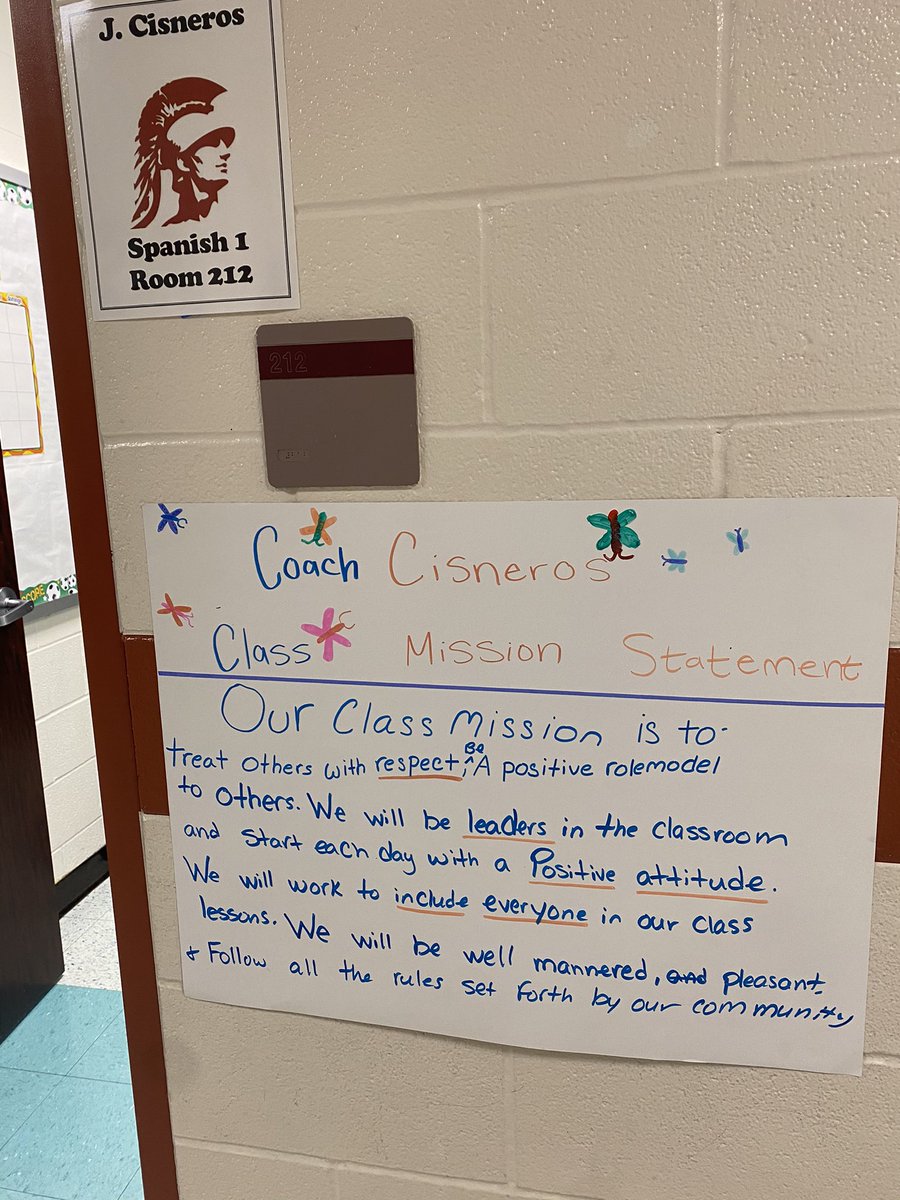 J. Cisneros
Spanish 1
Room 212
212
Coach Cisneros
Class Mission Statement
Our Class Mission is to
treat others with respect, Be A positive rolemodel
to others. We will be leaders in the classroom
and start each day with a Positive attitude.
We will work to include everyone in our class
lessons. We will be well mannered, and pleasant
+ Follow all the rules set forth by our community